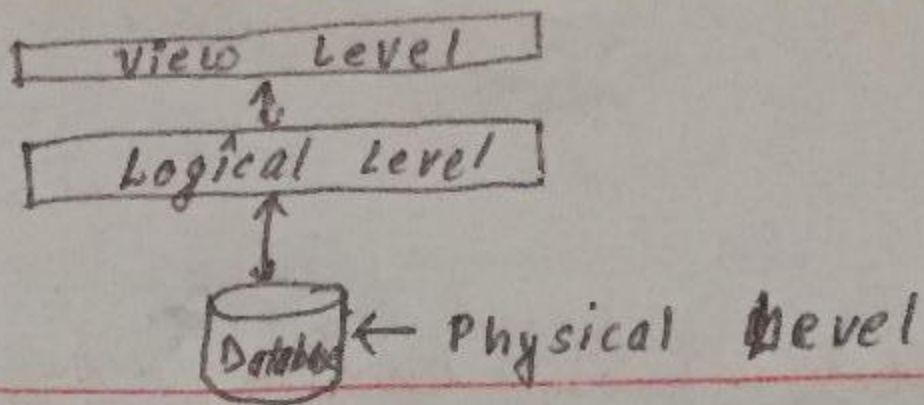 View Level
Logical Level
Database
← Physical Level